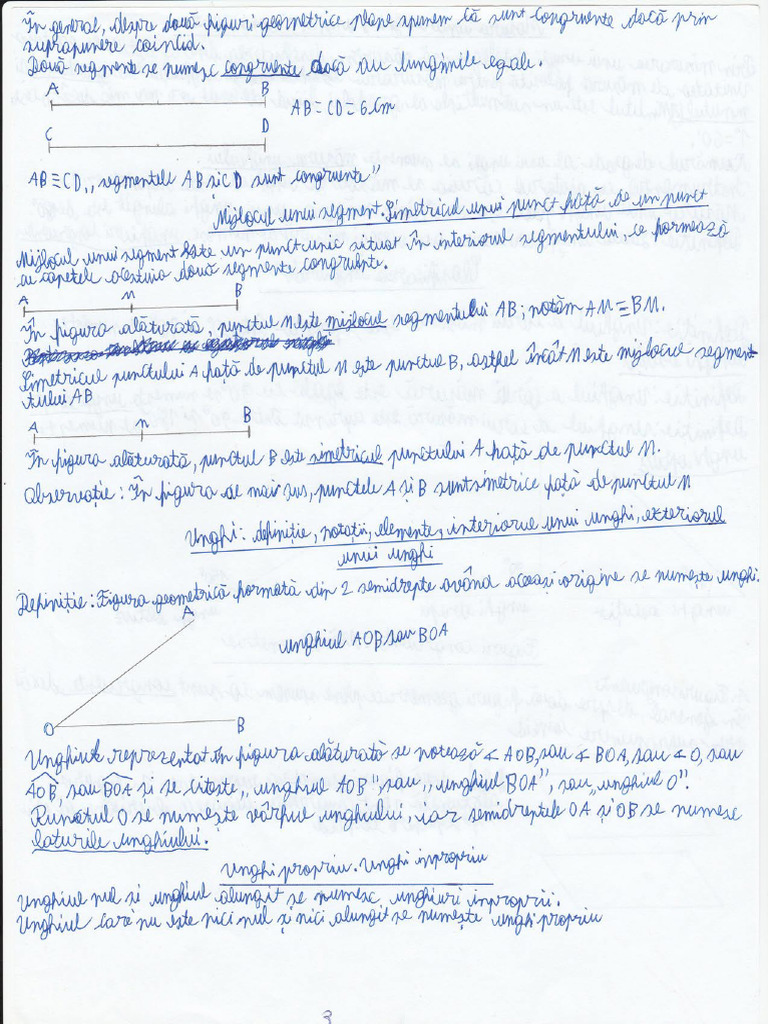 În general, despre două figuri geometrice plane spunem că sunt congruente dacă prin
suprapunere coincid.
Două segmente se numesc congruente, dacă au lungimile egale.
A B
AB = CD = 6 cm
C D
AB ≡ CD „segmentele AB și CD sunt congruente”
Mijlocul unui segment. Simetricul unui punct față de un punct
Mijlocul unui segment este un punct unic situat în interiorul segmentului, ce formează
cu capetele acestuia două segmente congruente.
A M B
În figura alăturată, punctul M este mijlocul segmentului AB; notăm AM ≡ BM.
Simetricul punctului A față de punctul M este punctul B, astfel încât M este mijlocul segmen-
tului AB
A M B
În figura alăturată, punctul B este simetricul punctului A față de punctul M.
Observație: În figura de mai sus, punctele A și B sunt simetrice față de punctul M
Unghi: definiție, notații, elemente, interiorul unui unghi, exteriorul
unui unghi
Definiție: Figura geometrică formată din 2 semidrepte având aceași origine se numește unghi.
A
unghiul AOB sau BOA
O B
Unghiul reprezentat în figura alăturată se notează ∢ AOB, sau ∢ BOA, sau ∢ O, sau
AOB, sau BOA și se citește „unghiul AOB” sau „unghiul BOA”, sau „unghiul O”.
Punctul O se numește vârful unghiului, iar semidreptele OA și OB se numesc
laturile unghiului.
Unghi propriu. Unghi inpropriu
Unghiul nul si unghiul alungit se numesc unghiuri inproprii.
Unghiul care nu este nici nul și nici alungit se numește unghi propriu
3